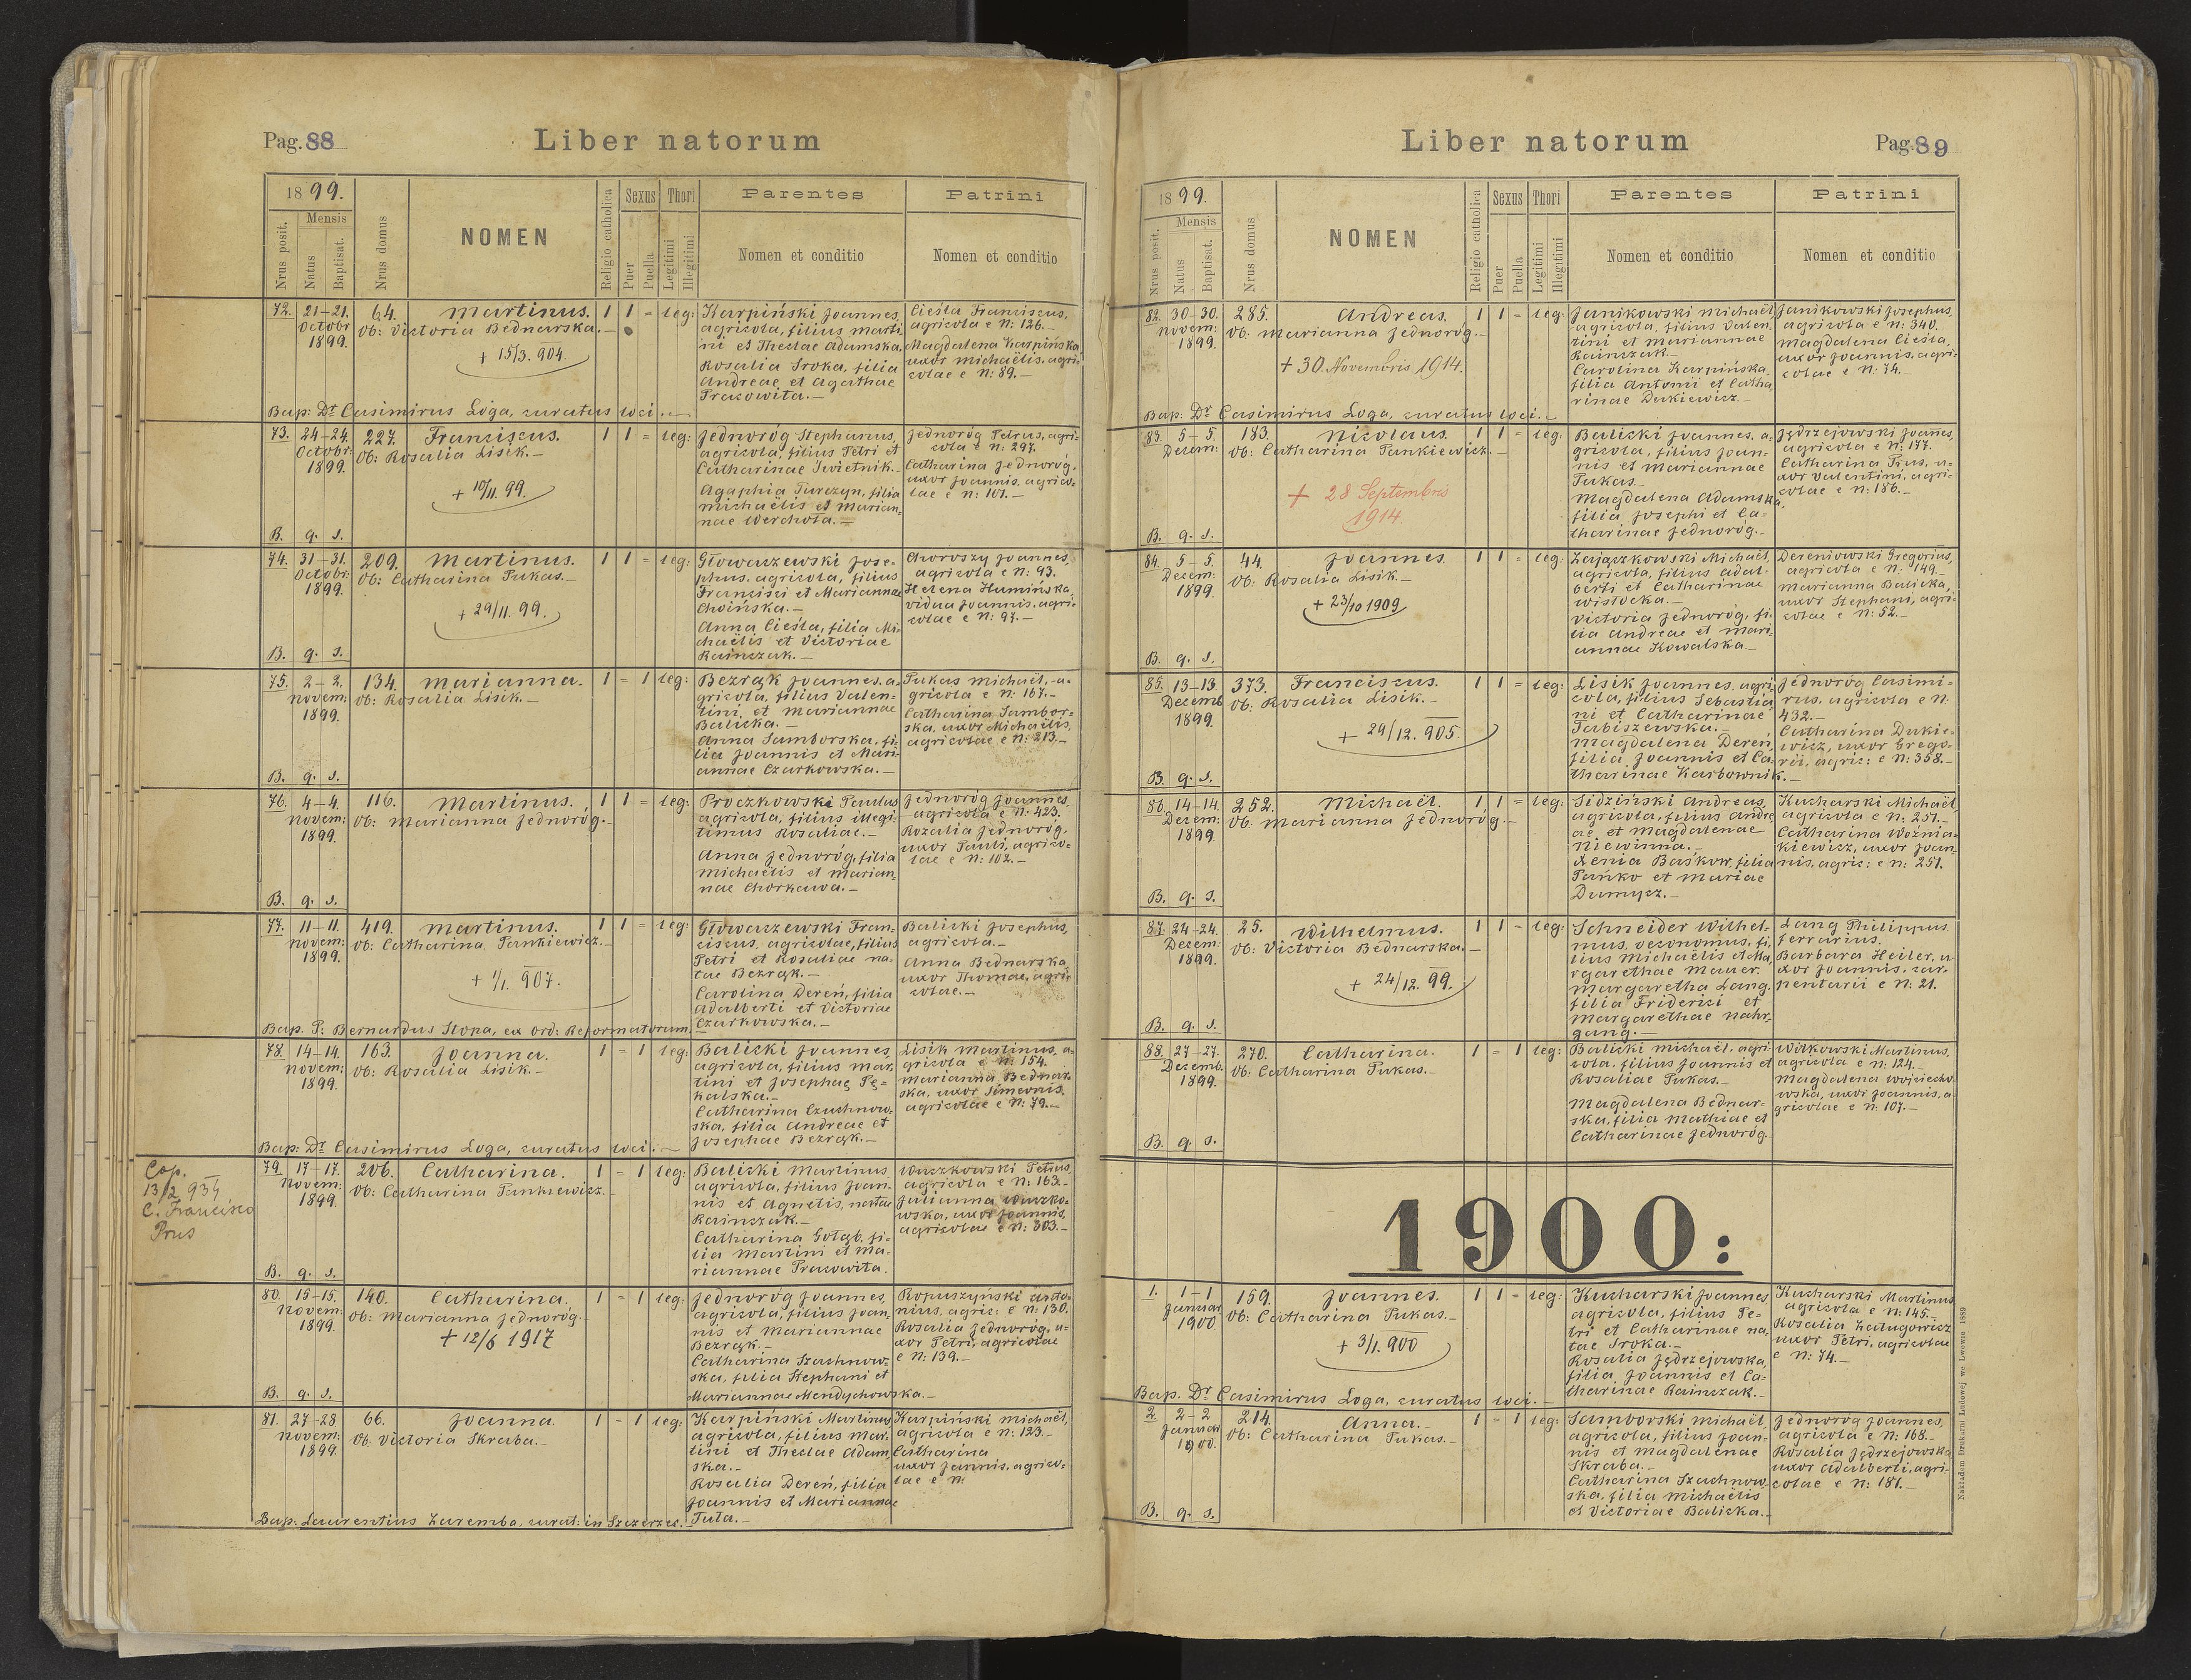 Pag. 88
Liber natorum
1899.
Mensis
Nrus posit.
Natus
Baptisat.
Nrus domus
NOMEN
Religio catholica
Sexus
Puer
Puella
Thori
Legitimi
Illegitimi
Parentes
Nomen et conditio
Patrini
Nomen et conditio
72. 21-21. Octobr 1899. 64. Martinus. 1 1 = leg:
Ob: Victoria Bednarska.
+ 15/3. 904.
Karpiński Joannes,
agricola, filius Marti
ni et Theclae Adamska.
Rosalia Sroka, filia
Andreae et Agathae
Pracowita.-
Cieśla Franciscus,
agricola e N: 126.-
Magdalena Karpińska
uxor Michaëlis, agri=
colae e N: 89.-
Bap: Dr Casimirus Loga, curatus loci.-
73. 24-24. Octobr: 1899. 227. Franciscus. 1 1 = leg:
Ob: Rosalia Lisik.-
+ 10/11. 99.
Jednoróg Stephanus,
agricola, filius Petri et
Catharinae Swietnik.-
Agaphia Turczyn, filia
Michaëlis et Marian=
nae Werchoła.-
Jednoróg Petrus, agri=
cola e N: 297.
Catharina Jednoróg,
uxor Joannis, agrico=
lae e N: 101.-
B. q. s.
74. 31-31. Octobr: 1899. 209. Martinus. 1 1 = leg:
Ob: Catharina Pukas.-
+ 29/11. 99.
Głowaczewski Jose=
phus, agricola, filius
Francisci et Mariannae
Choińska.-
Anna Cieśla, filia Mi=
chaëlis et Victoriae
Rainczak.-
Choroszy Joannes,
agricola e N: 93.
Helena Humińska,
vidua Joannis, agri=
colae e N: 97.-
B. q. s.
75. 2-2. Novem: 1899. 134. Marianna. 1 = 1 leg:
Ob: Rosalia Lisik.-
Bezrąk Joannes, a=
gricola, filius Valen=
tini et Mariannae
Balicka.-
Anna Samborska, fi=
lia Joannis et Mari=
annae Czarkowska.-
Pukas Michaël, a=
gricola e N: 167.-
Catharina Sambor=
ska, uxor Michaëlis,
agricolae e N: 213.-
B. q. s.
76. 4-4. Novem: 1899. 116. Martinus. 1 1 = leg:
Ob: Marianna Jednoróg.-
Proczkowski Paulus
agricola, filius illegi=
timus Rosaliae.-
Anna Jednoróg, filia
Michaëlis et Marian=
nae Chorkawa.-
Jednoróg Joannes
agricola e N: 423.
Rozalia Jednoróg,
uxor Pauli, agrico=
lae e N: 102.-
B. q. s.
77. 11-11. Novem: 1899. 419. Martinus. 1 1 = leg:
Ob: Catharina Pankiewicz.-
+ 1/1. 907.
Głowaczewski Fran=
ciscus, agricolae, filius
Petri et Rosaliae na=
tae Bezrąk.-
Carolina Dereń, filia
Adalberti et Victoriae
Czarkowska.-
Balicki Josephus,
agricola.-
Anna Bednarska
uxor Thomae, agri=
colae.-
Bap. P. Bernardus Stopa, ex ord: Reformatorum.
78. 14-14. Novem: 1899. 163. Joanna. 1 = 1 leg:
Ob: Rosalia Lisik.-
Balicki Joannes,
agricola, filius Mar=
tini et Josephae Pę=
kalska.-
Catharina Czuchnow=
ska, filia Andreae et
Josephae Bezrąk.-
Lisik Martinus, a=
gricola e N: 154.
Marianna Bednar=
ska, uxor Simeonis,
agricolae e N: 79.-
Bap: Dr Casimirus Loga, curatus loci.-
Cop.
13/2 934
c. Francisco
Prus
79. 17-17. Novem: 1899. 206. Catharina. 1 = 1 leg:
Ob: Catharina Pankiewicz.-
Balicki Martinus
agricola, filius Joan=
nis et Agnetis, natae
Rainczak.-
Catharina Gołąb, fi=
lia Martini et Ma=
riannae Pracowita.
Waszkowski Petrus,
agricola e N: 163.-
Julianna Waszko=
wska, uxor Joannis,
agricolae e N: 303.-
B. q. s.
80. 15-15. Novem: 1899. 140. Catharina. 1 = 1 leg:
Ob: Marianna Jednoróg.-
+ 12/6 1917
Jednoróg Joannes,
agricola, filius Joan=
nis et Mariannae
Bezrąk.-
Catharina Szachnow=
ska, filia Stephani et
Mariannae Mendychowska.-
Ropuszyński Anto=
nius, agric: e N: 130.
Rosalia Jednoróg, u=
xor Petri, agricolae
e N: 139.-
B. q. s.
81. 27-28 Novem: 1899. 66. Joanna 1 = 1 leg:
Ob. Victoria Skraba.-
Karpiński Martinus
agricola, filius Mar=
tini et Theclae Adam=
ska.-
Rosalia Dereń, filia
Joannis et Mariannae
Tuta.-
Karpiński Michaël,
agricola e N: 123.-
Catharina
uxor Joannis, agrico=
lae e N:
Bap. Laurentius Zaremba, curat: in Szczerzec.-
Liber natorum
Pag. 89
1899.
Mensis
Nrus posit.
Natus
Baptisat.
Nrus domus
NOMEN
Religio catholica
Sexus
Puer
Puella
Thori
Legitimi
Illegitimi
Parentes
Nomen et conditio
Patrini
Nomen et conditio
82. 30-30. Novem: 1899. 285. Andreas. 1 1 = leg:
Ob: Marianna Jednoróg.-
+ 30 Novembris 1914.
Janikowski Michaël
agricola, filius Valen=
tini et Mariannae
Rainczak.-
Carolina Karpińska,
filia Antoni et Catha=
rinae Dukiewicz.-
Janikowski Josephus,
agricola e N: 340.
Magdalena Cieśla,
uxor Joannis, agri=
colae e N: 74.-
Bap: Dr Casimirus Loga, curatus loci.-
83. 5-5. Decem: 183. Nicolaus. 1 1 = leg:
Ob: Catharina Pankiewicz.-
+ 28 Septembris
1914.
Balicki Joannes, a=
gricola, filius Joan=
nis et Mariannae
Pukas.-
Magdalena Adamska,
filia Josephi et Ca=
tharinae Jednoróg.-
Jędrzejowski Joannes,
agricola e N: 177.
Catharina Prus, u=
xor Valentini, agri=
colae e N: 186.-
B. q. s.
84. 5-5. Decem: 1899. 44. Joannes. 1 1 = leg:
Ob. Rosalia Lisik.-
+ 23/10 1909
Zajączkowski Michaël,
agricola, filius Adal=
berti et Catharinae
Wisłocka.-
Victoria Jednoróg, fi=
lia Andreae et Mari=
annae Kowalska.-
Dereniowski Gregorius,
agricola e N: 149.-
Marianna Balicka,
uxor Stephani, agri=
colae e N: 52.-
B. q. s.
85. 13-13. Decemb 1899. 373. Franciscus. 1 1 = leg:
Ob: Rosalia Lisik.-
+ 29/12. 905.
Lisik Joannes, agri=
cola, filius Sebastia=
ni et Catharinae
Tabiszewska.-
Magdalena Dereń,
filia Joannis et Ca=
tharinae Karbownik.-
Jednoróg Casimi=
rus, agricola e N:
432.-
Catharina Dukie=
wicz, uxor Grego=
rii, agric: e N: 358.-
B. q. s.
86. 14-14. Decem: 1899. 252. Michaël. 1 1 = leg:
Ob: Marianna Jednoróg.-
Sidziński Andreas,
agricola, filius Andre=
ae et Magdalenae
Niewinna.-
Xenia Baśkow, filia
Pańko et Mariae
Dumycz.-
Kucharski Michaël,
agricola e N: 251.
Catharina Woźnia=
kiewicz, uxor Joan=
nis, agric: e N: 251.
B. q. s.
87. 24-24. Decem: 1899. 25. Wilhelmus. 1 1 = leg:
Ob: Victoria Bednarska.-
+ 24/12. 99.
Schneider Wilhel=
mus, oeconomus, fi=
lius Michaëlis et Ma=
rgarethae Mauer.
Margaretha Lang,
filia Friderici et
Margarethae Nahr=
gang.-
Lang Philippus
ferrarius.
Barbara Heiler, u=
xor Joannis, car=
pentarii e N: 21.
B. q. s.
88. 27-27. Decemb. 1899. 270. Catharina. 1 = 1 leg:
Ob: Catharina Pukas.-
Balicki Michaël, agri=
cola, filius Joannis et
Rosaliae Pukas.-
Magdalena Bednar=
ska, filia Mathiae et
Catharinae Jednoróg.
Witkowski Martinus,
agricola e N: 124.-
Magdalena Wojciecho=
wska, uxor Joannis, a
gricolae e N: 107.-
B. q. s.
1900:
1. 1-1 Januar 1900. 159. Joannes. 1 1 = leg:
Ob: Catharina Pukas.-
+ 3/1. 900
Kucharski Joannes
agricola, filius Pe=
tri et Catharinae na=
tae Sroka.-
Rosalia Jędrzejowska,
filia Joannis et Ca=
tharinae Rainczak.-
Kucharski Martinus
agricola e N: 145.-
Rosalia Kaługowicz
uxor Petri, agricolae
e N: 74.-
Bap. Dr Casimirus Loga, curatus loci.-
2. 2-2 Januar 1900. 214. Anna. 1 = 1 leg:
Ob: Catharina Pukas.-
Samborski Michaël
agricola, filius Joan=
nis et Magdalenae
Skraba.-
Catharina Szachnow=
ska, filia Michaëlis
et Victoriae Balicka.-
Jednoróg Joannes,
agricola e N: 168.-
Rosalia Jędrzejowska
uxor Adalberti, agri=
colae e N: 181.-
B. q. s.
Nakładem Drukarni Ludowej we Lwowie 1889